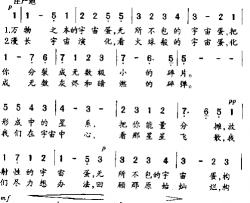 庄严地
p
1 1 - 5 1 2 2 5 5 3 2 3 4 3 - 2 1
1.万物 之本的宇宙蛋,无 所不包的 宇宙 蛋,把
2.漫长 宇宙 演化,看 火球般的 宇宙 蛋化
1 - 7 6 7 1 2 3 1 7 - 6 5 5
你 分裂 成无数极 小 的 碎片。
成 无数 灰烬和暗 燃 的 碎片。
5 5 4 3 4 - - 3 3 2 3 1 2 - 7 6 5 5 1
形成中 的 星 系, 把你能量 分 摊,放
我们在宇宙中 心, 看那星星 飞 散,我
1 7 1 2 1 - 5 5 3 2 3 4 3 - 2 3
射性的 宇宙 蛋,无 所不包的 宇宙 蛋,构
们尽力想 办 法,回 顾那原始 灿 烂,构
mf